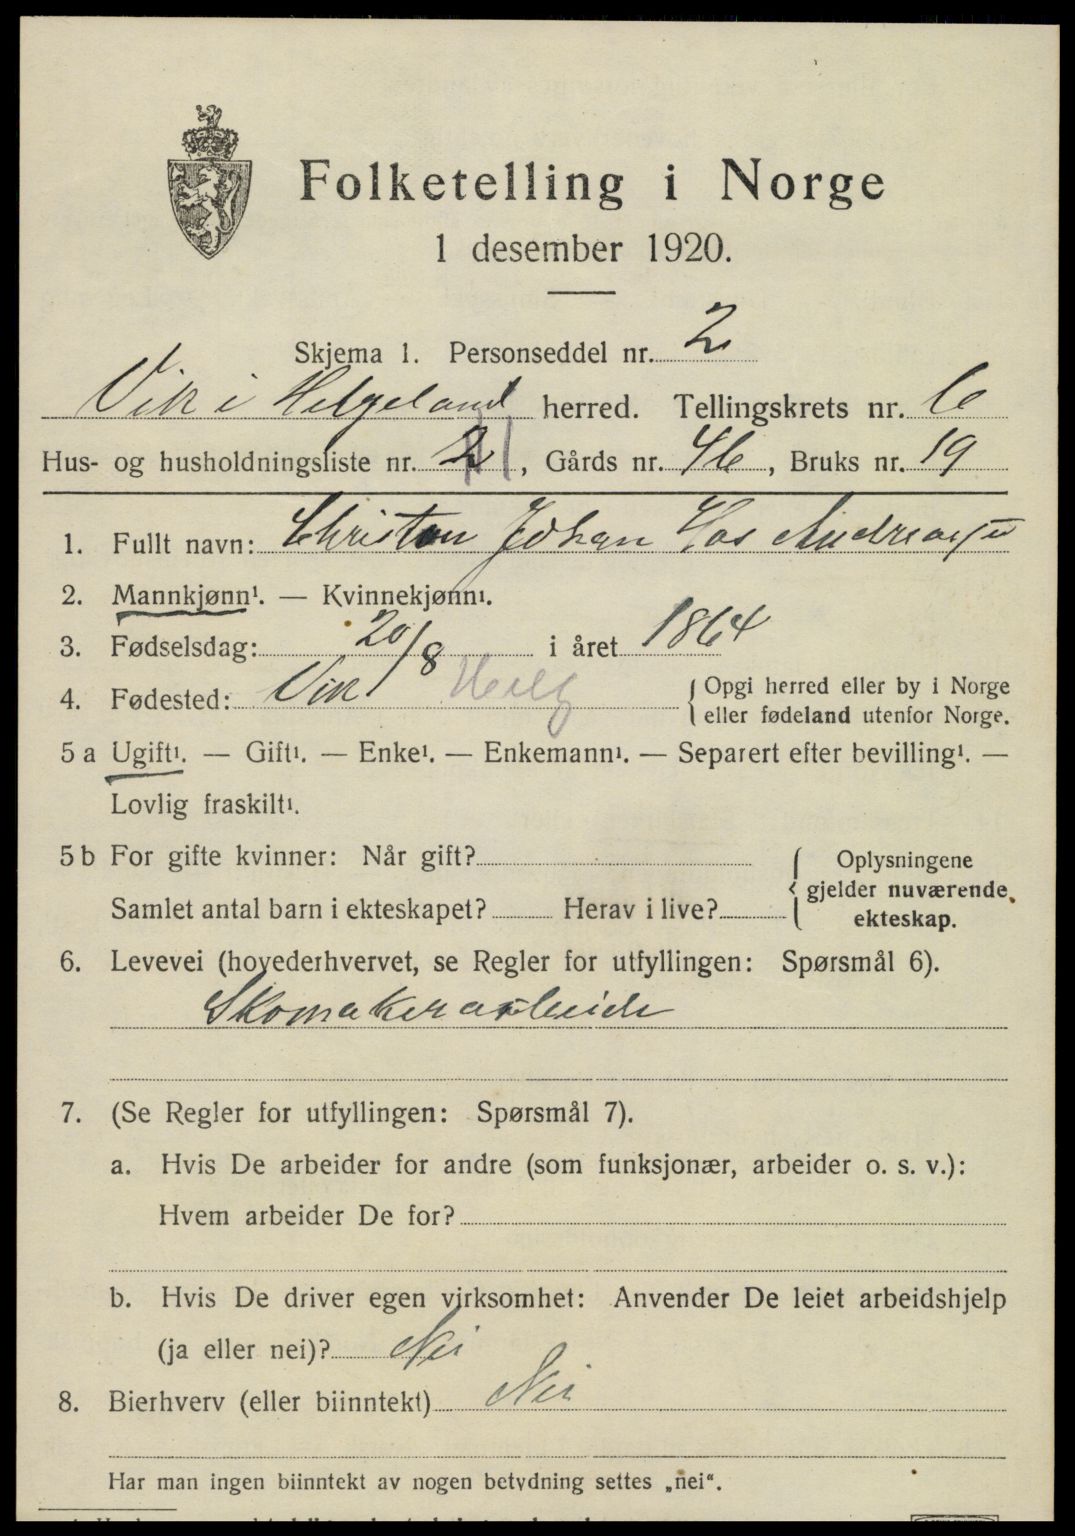 Folketelling i Norge
1 desember 1920.
Skjema 1. Personseddel nr. 2
Vik i Helgeland herred. Tellingskrets nr. 6
Hus- og husholdningsliste nr. 2, Gårds nr. 46, Bruks nr. 19
1. Fullt navn: Johan
2. Mannkjønn¹. — Kvinnekjønn¹.
3. Fødselsdag: 20/8 i året 1864
4. Fødested: Vik Helg { Opgi herred eller by i Norge
eller fødeland utenfor Norge.
5 a Ugift¹. — Gift¹. — Enke¹. — Enkemann¹. — Separert efter bevilling¹. —
Lovlig fraskilt¹.
5 b For gifte kvinner: Når gift?
Samlet antal barn i ekteskapet? Herav i live?
{ Oplysningene
gjelder nuværende
ekteskap.
6. Levevei (hovederhvervet, se Regler for utfyllingen: Spørsmål 6).
Skomakerarbeide
7. (Se Regler for utfyllingen: Spørsmål 7).
a. Hvis De arbeider for andre (som funksjonær, arbeider o. s. v.):
Hvem arbeider De for?
b. Hvis De driver egen virksomhet: Anvender De leiet arbeidshjelp
(ja eller nei)? Nei
8. Bierhverv (eller biinntekt) Nei
Har man ingen biinntekt av nogen betydning settes „nei“.